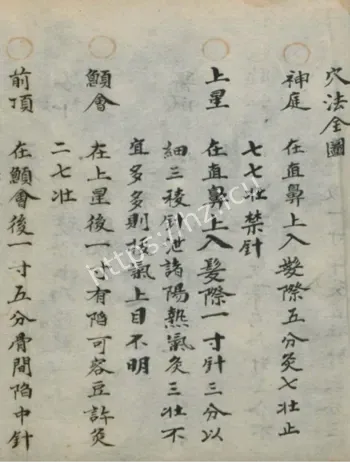 穴法全圖
神庭 在直鼻上入髮際五分灸七壯止
七七壯禁針
上星 在直鼻上入髮際一寸針三分以
細三稜針泄諸陽熱氣灸三壯不
宜多多則拔氣上目不明
顖會 在上星後一寸有陷可容豆許灸
二七壯
前頂 在顖會後一寸五分骨間陷中針